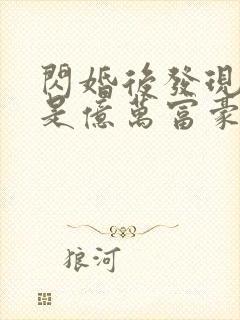 閃婚後發現
是億萬富豪
狼河